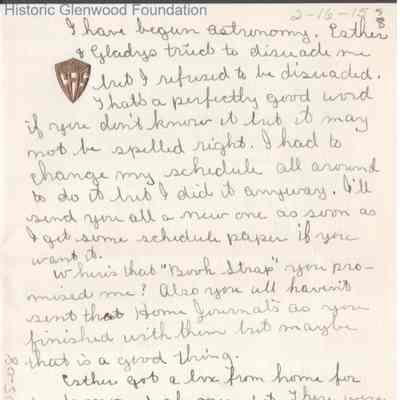 Historic Glenwood Foundation
2-16-15
I have begun astronomy. Esther
& Gladys tried to disuade me
but I refused to be disuaded.
Thats a perfectly good word
if you don't know it but it may
not be spelled right. I had to
change my schedule all around
to do it but I did it anyway. I'll
send you all a new one as soon as
I get some schedule paper if you
want it.
Where's that "Book Strap" you pro-
mised me? Also you all haven't
sent that Home Journals as you
finished with them but maybe
that is a good thing.
Esther got a box from home for
There were